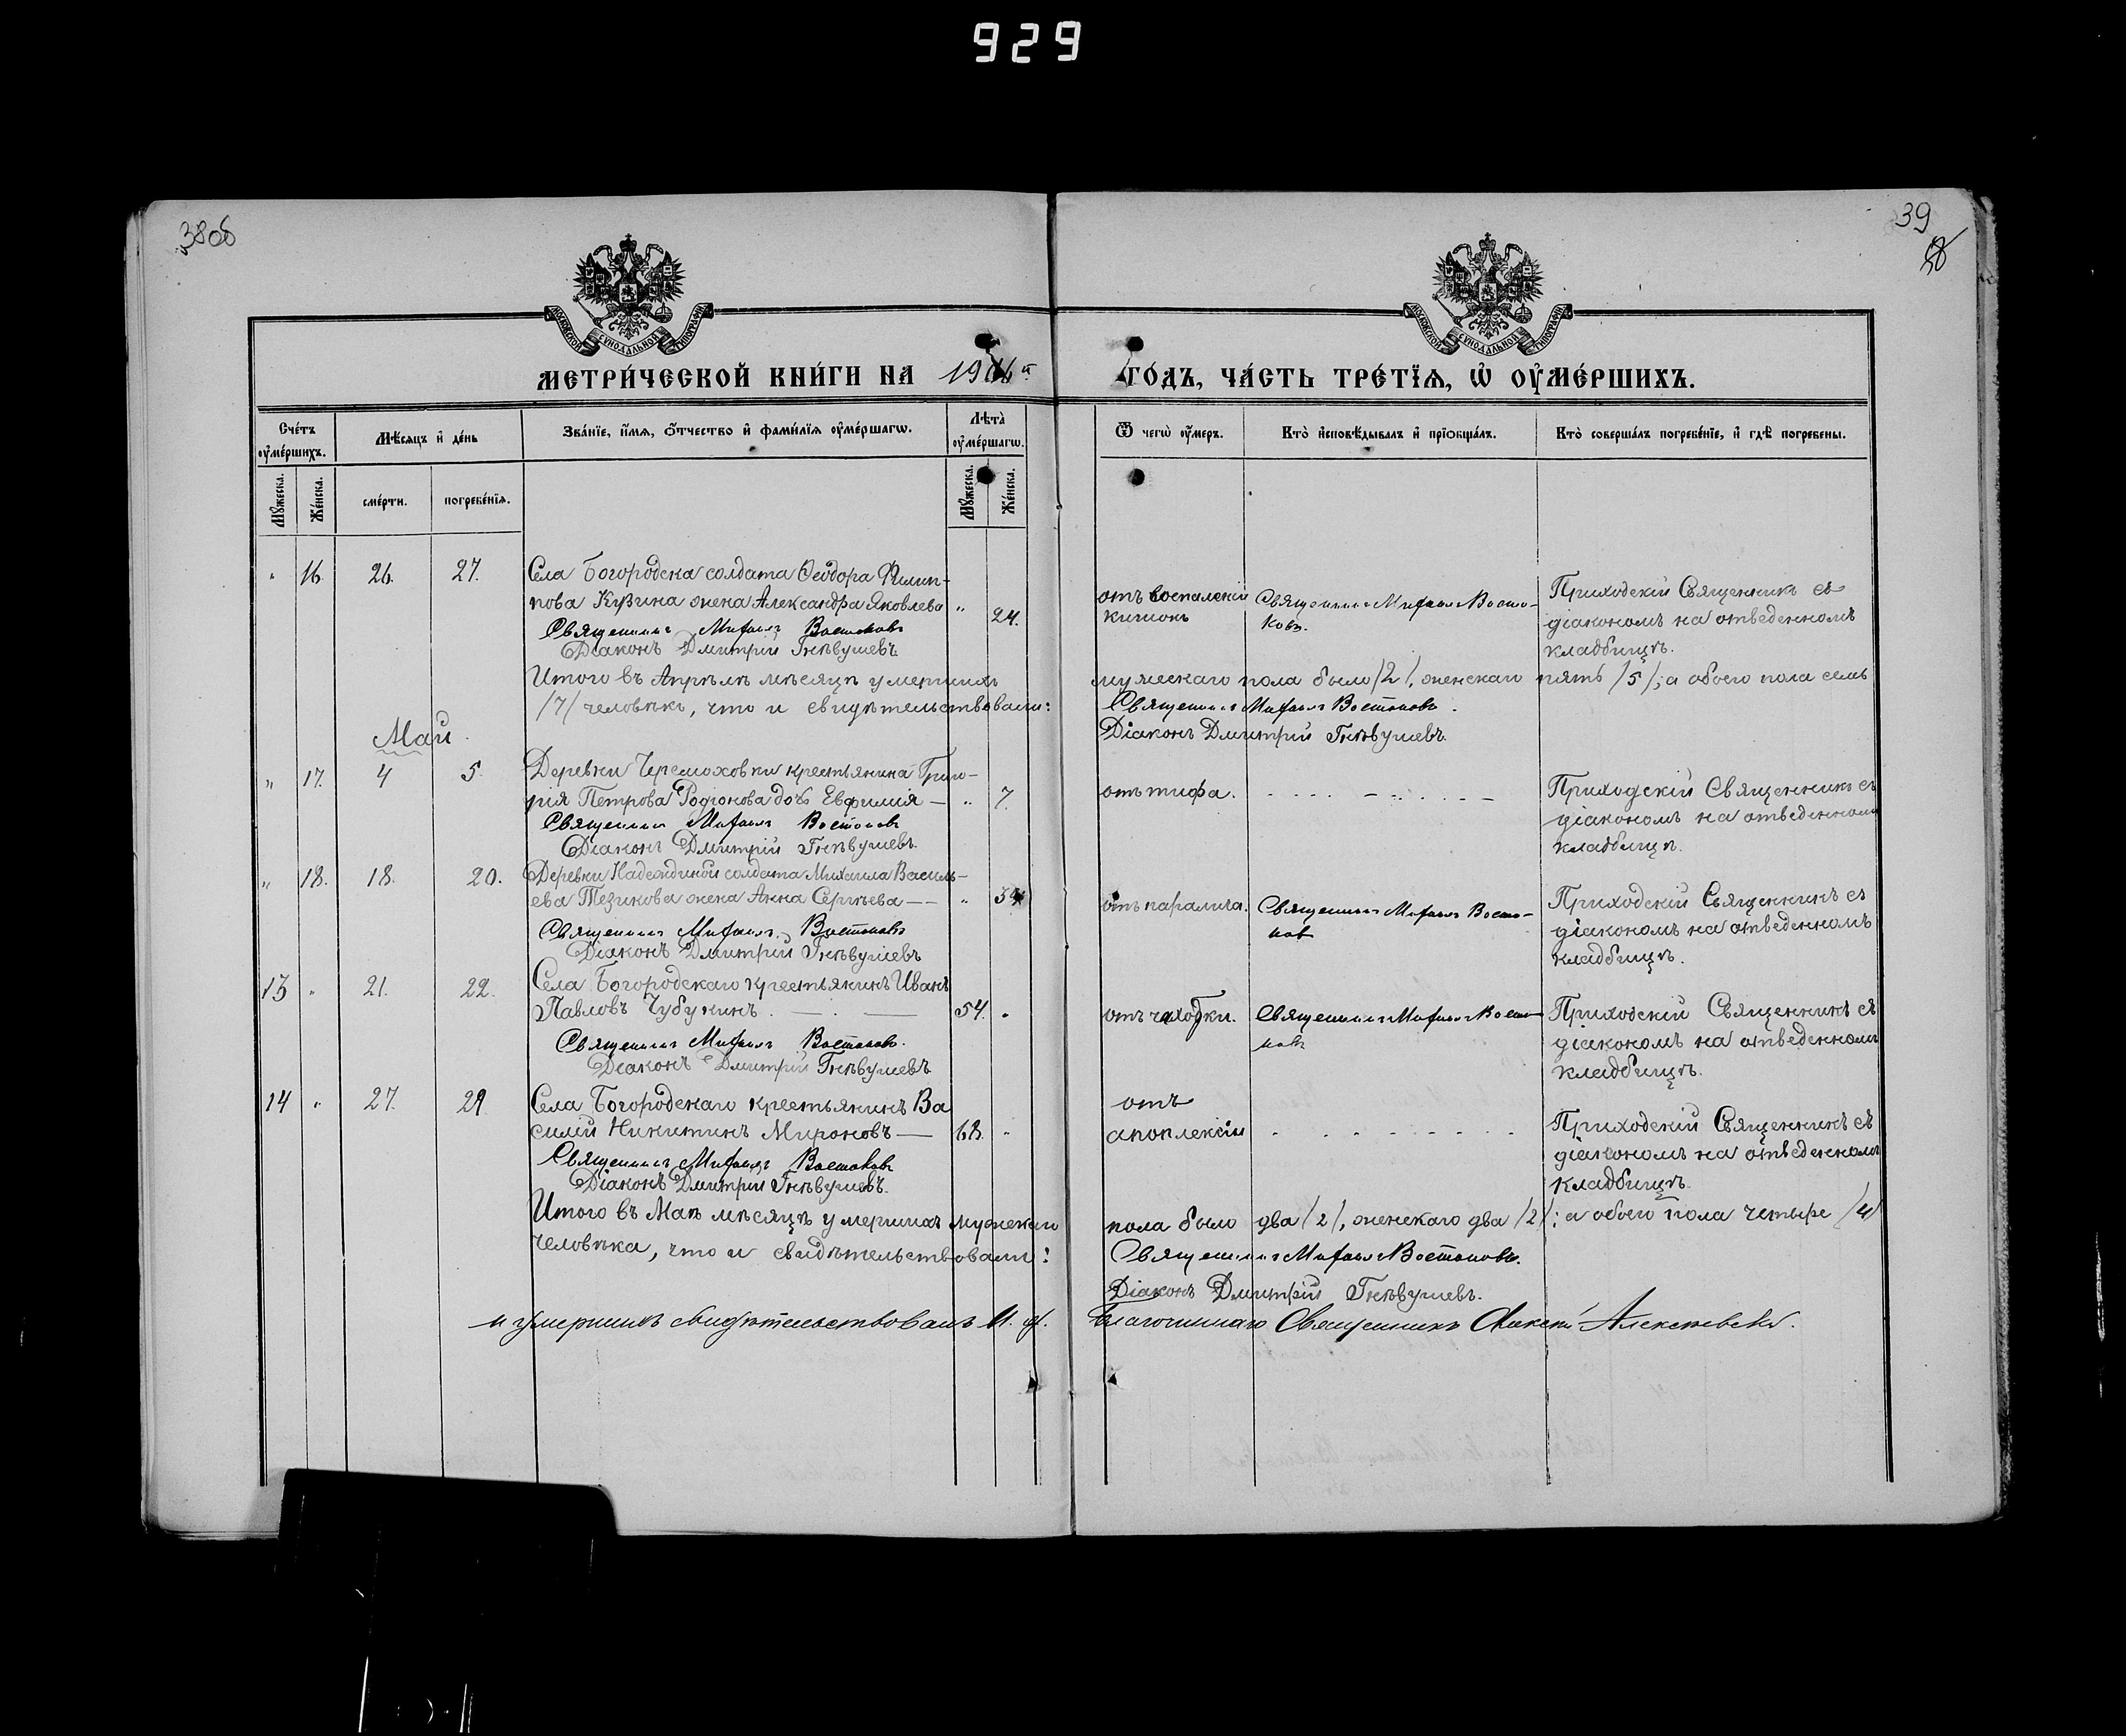 929
38об
39
МОСКОВСКОЙ СѴНОДАЛЬНОЙ ТИПОГРАФІИ
МОСКОВСКОЙ СѴНОДАЛЬНОЙ ТИПОГРАФІИ
МЕТРИ́ЧЕСКОЙ КНИ́ГИ НА 1916й ГО́ДЪ, ЧА́СТЬ ТРЕ́ТЇѦ, Ѡ҆ ОУ҆МЕ́РШИХЪ.
Сче́тъ оу҆ме́ршихъ.
Мѣ́сяцъ и҆ де́нь
Зва́нїе, и҆́мѧ, ѻ҆́тчество и҆ фами́лїѧ оу҆ме́ршагѡ.
Лѣ́та оу҆ме́ршагѡ.
Ѿ чегѡ̀ оу҆́меръ.
Кто̀ и҆сповѣ́дывалъ и҆ прїѡбща́лъ.
Кто̀ соверша́лъ погребе́нїе, и҆ гдѣ̀ погребены.
Мꙋ́жеска. Же́нска. сме́рти. погребе́нїѧ. Мꙋ́жеска. Же́нска.
" 16. 26. 27. Села Богородска солдата Ѳеодора Филип-
пова Кузина жена Александра Яковлева " 24.
Священникъ Михаилъ Востоковъ
Діаконъ Дмитрій Гнѣвушевъ
отъ воспаленія
кишокъ
Священникъ Михаилъ Восто-
ковъ.
Приходскій Священникъ съ
діакономъ на отведенномъ
кладбищѣ.
Итого въ Апрѣлѣ мѣсяцѣ умершихъ мужескаго пола было /2/, женскаго пять /5/; а обоего пола семь
/7/ человѣкъ, что и свидѣтельствовали: Священникъ Михаилъ Востоковъ.
Діаконъ Дмитрій Гнѣвушевъ
Май
" 17. 4 5. Деревни Черемоховки крестьянина Григо-
рія Петрова Родіонова дочь Евфимія — " 7.
Священникъ Михаилъ Востоковъ
Діаконъ Дмитрій Гнѣвушевъ
отъ тифа.
Приходскій Священникъ съ
діакономъ на отведенномъ
кладбищѣ.
" 18. 18. 20. Деревни Надеждиной солдата Михаила Василь-
ева Тезикова жена Анна Сергѣева —— "
Священникъ Михаилъ Востоковъ
Діаконъ Дмитрій Гнѣвушевъ
отъ паралича.
Священникъ Михаилъ Восто-
ков
Приходскій Священникъ съ
діакономъ на отведенномъ
кладбищѣ.
13 " 21. 22. Села Богородскаго крестьянинъ Иванъ
Павловъ Чубукинъ. 54. "
Священникъ Михаилъ Востоковъ.
Діаконъ Дмитрій Гнѣвушевъ
отъ чахотки.
Священникъ Михаилъ Восто-
ковъ
Приходскій Священникъ съ
діакономъ на отведенномъ
кладбищѣ.
14 " 27. 29 Села Богородскаго крестьянинъ Ва
силій Никитинъ Мироновъ — 68. "
Священникъ Михаилъ Востоковъ
Діаконъ Дмитрій Гнѣвушевъ.
отъ
апоплексіи
Приходскій Священникъ съ
діакономъ на отведенномъ
кладбищѣ.
Итого въ Маѣ мѣсяцѣ умершихъ мужескаго пола было два /2/, женскаго два /2/; а обоего пола четыре /4/
человѣка, что и свидѣтельствовали: Священникъ Михаилъ Востоковъ.
Діаконъ Дмитрій Гнѣвушевъ.
и умершихъ свидѣтельствовалъ И. д. Благочиннаго Священникъ Алексѣй Алексѣевскій.